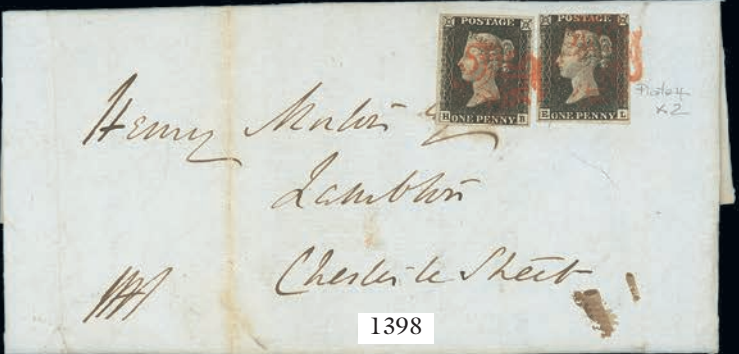 POSTAGE POSTAGE
H ONE PENNY B E ONE PENNY L
Plate 4
x2
Henry Morton Esq
Lambton
Chester le Street
1398